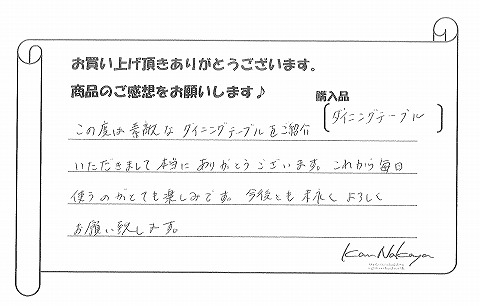 お買い上げ頂きありがとうございます。
商品のご感想をお願いします♪
購入品
ダイニングテーブル
この度は素敵なダイニングテーブルをご紹介
いただきまして本当にありがとうございます。これから毎日
使うのがとても楽しみです。今後とも末永くよろしく
お願い致します。